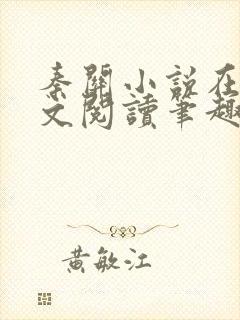 秦關小說在
文閱讀筆趣
黃敏江